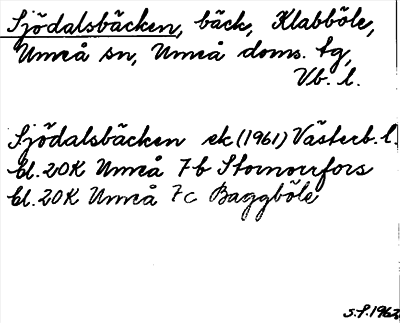 Sjödalsbäcken, bäck, Klabböle,
Umeå sn, Umeå doms. tg,
Vb. l.
Sjödalsbäcken ek (1961) Västerb. l.
bl. 20K Umeå 7b Stornorrfors
bl. 20K Umeå 7c Baggböle
S.F. 1962